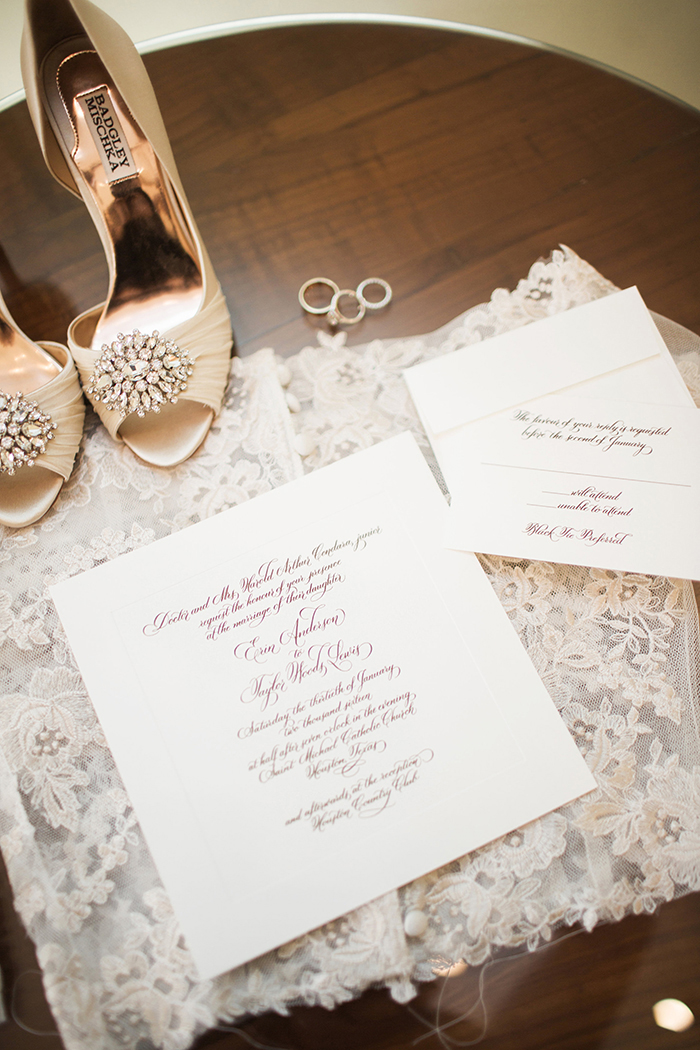 BADGLEY
MISCHKA
The honour of your reply is requested
before the second of January
will attend
unable to attend
Black Tie Preferred
Doctor and Mrs. Harold Arthur Condara, junior
request the honour of your presence
at the marriage of their daughter
Erin Anderson
to
Taylor Woods Lewis
Saturday the thirtieth of January
two thousand sixteen
at half after seven o'clock in the evening
Saint Michael Catholic Church
Houston, Texas
and afterwards at the reception
Houston Country Club